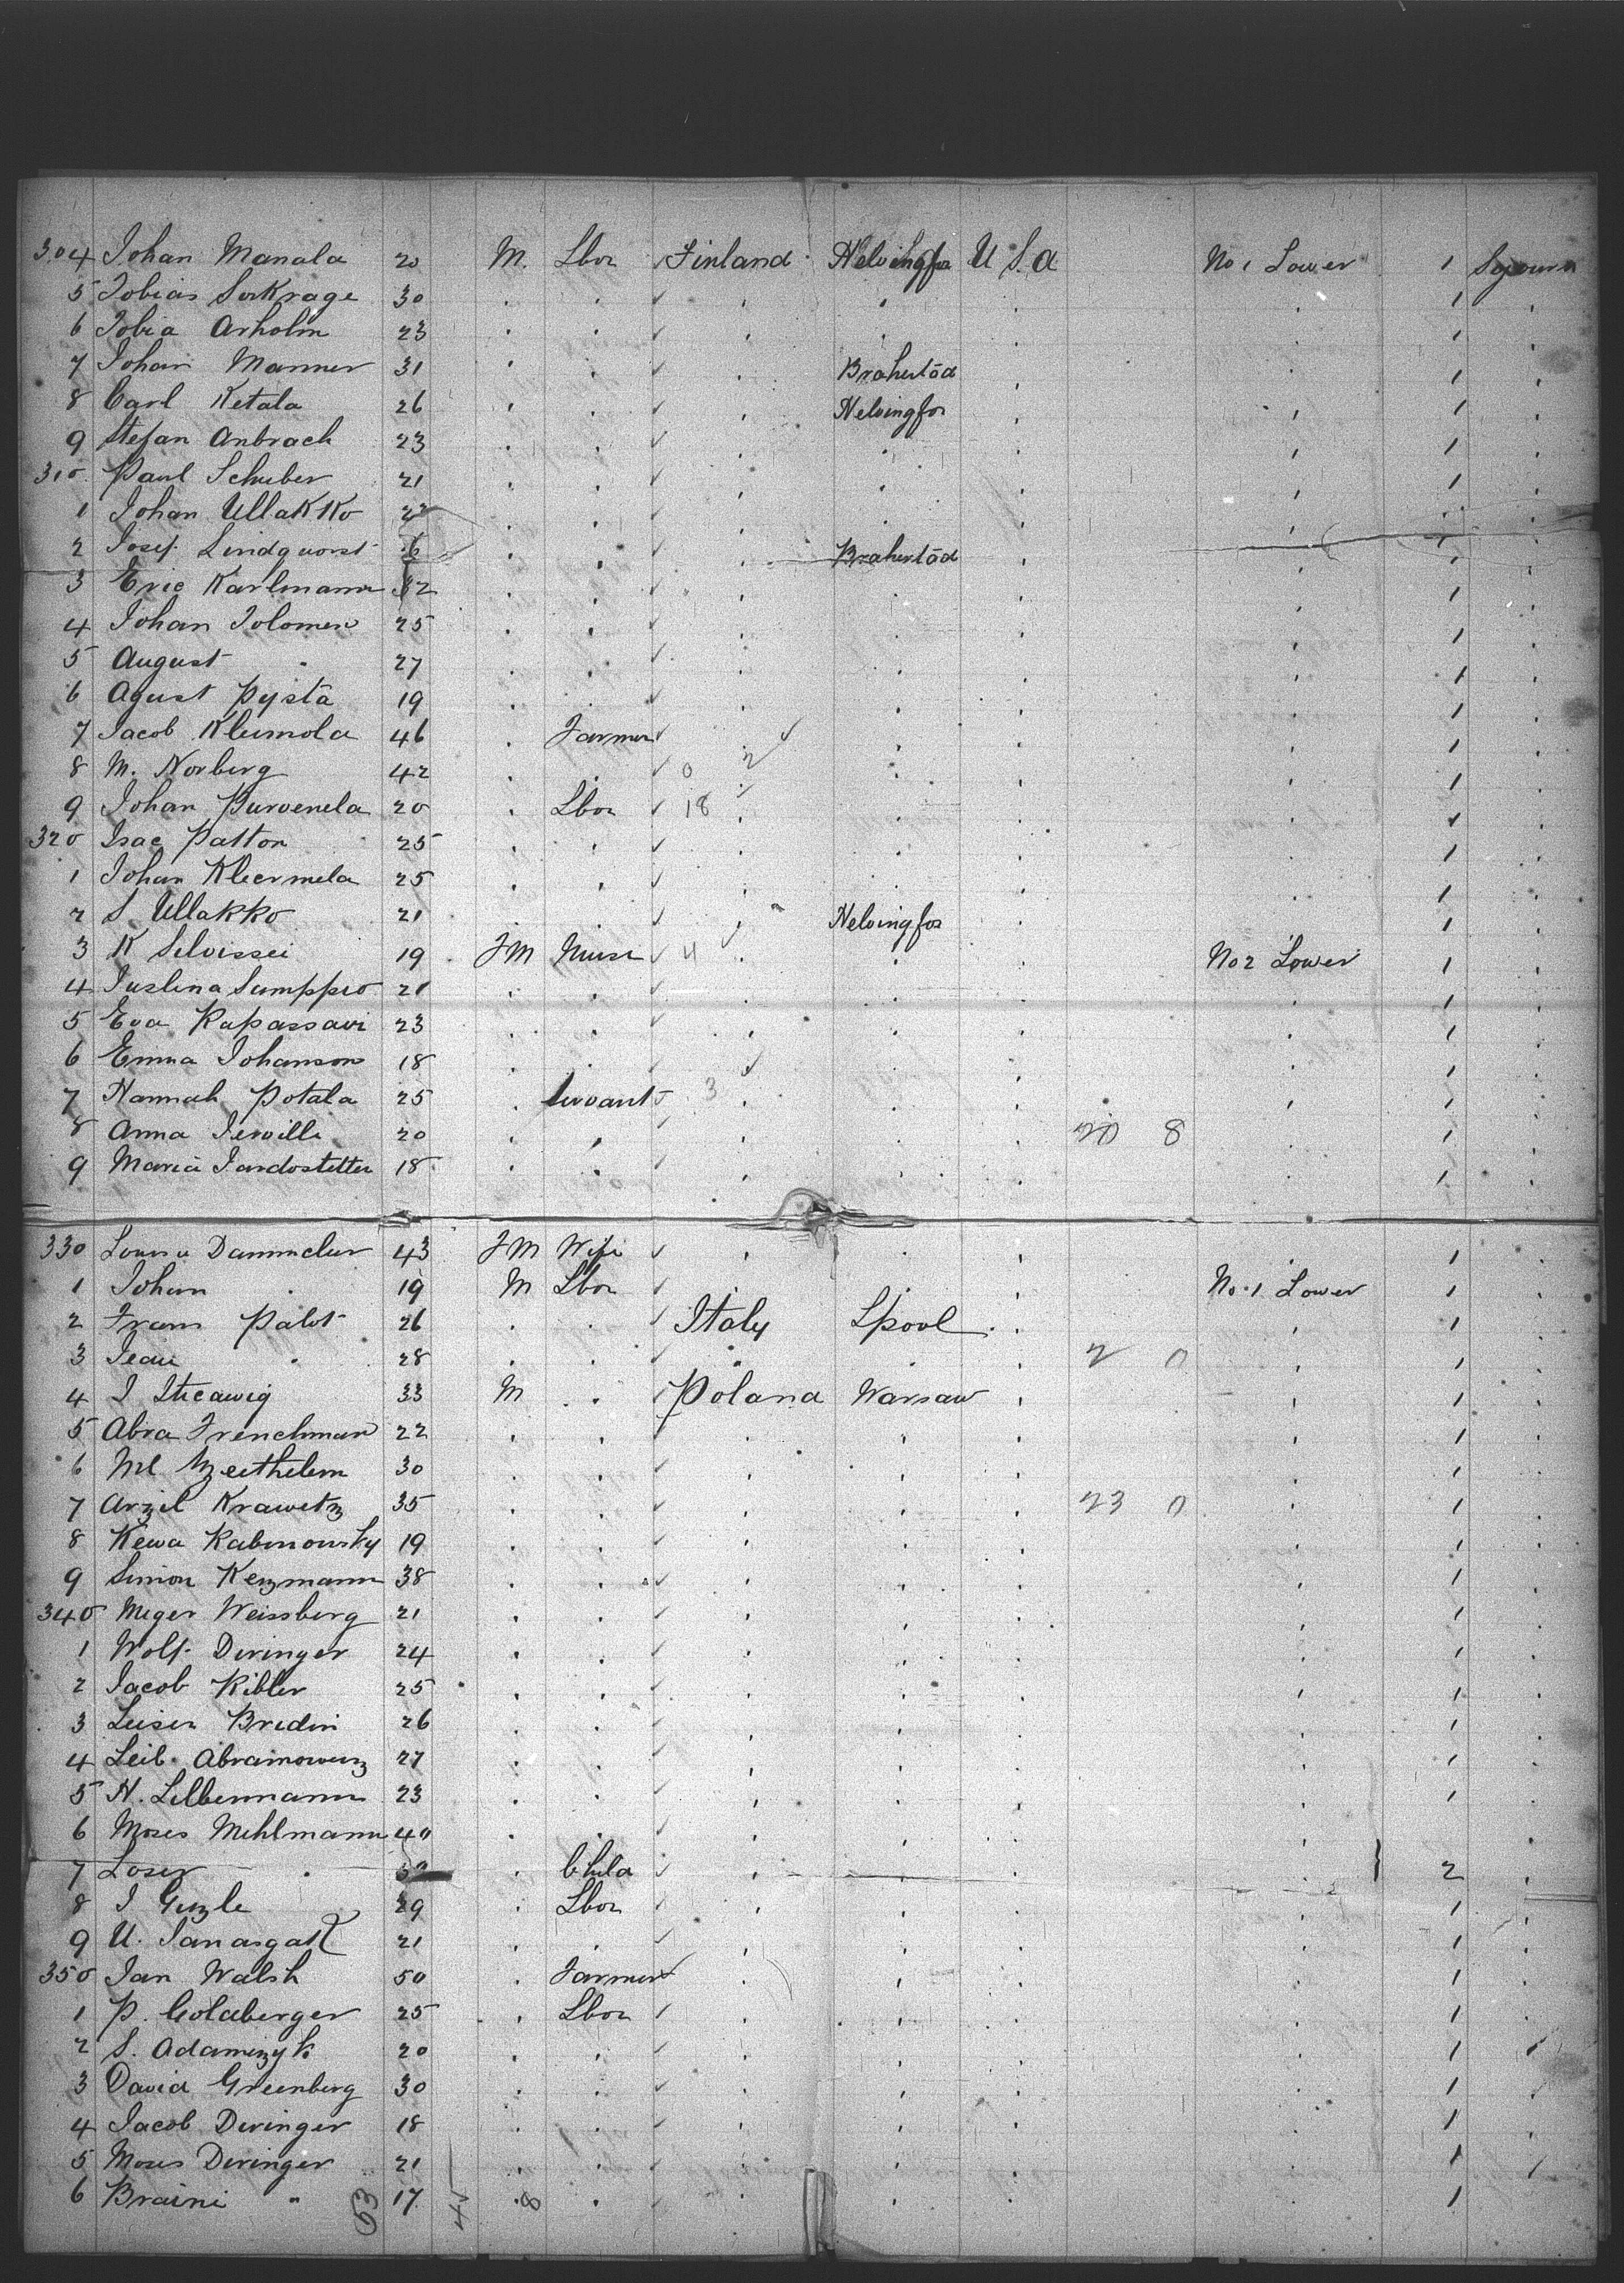 304 Johan Manala 20 M. Lbor Finland Helsingfo U S. a No 1 Lower 1 Sojourn
5 Tobias 30 1
6 Tobia Arholm 23 1
7 Johan Manner 31 Brahestäd 1
8 Carl Ketala 26 Helsingfor 1
9 Stefan Anbrach 23 1
310 Paul Schuber 21 1
1 Johan Ullakko 22 1
2 Josef Lindquorst Brahestäd 1
3 Eric Karlmann 32 1
4 Johan Solomen 25 1
5 August " 27 1
6 Agust Pystä 19 1
7 Jacob Klumola 46 Farmer 1
8 M. Norberg 42 0 2 1
9 Johan 20 Lbor 18 1
320 Isac Patton 25 1
1 Johan 25 1
2 S Ullakko 21 Helsingfor 1
3 K Silvissei 19 FM Nurse 4 No 2 Lower 1
4 Justina Sumppio 21 1
5 Eva Kapassavi 23 1
6 Emma Johanson 18 1
7 Hannah Potala 25 servant 3 1
8 Anna 20 20 8 1
9 Maria 18 1
330 43 FM Wife 1
1 Johan " 19 M Lbor No. 1 Lower 1
2 Frans Palot 26 Italy Lpool 1
3 Jean " 28 2 0 1
4 J 33 M Poland Warsaw 1
5 Abra Frenchman 22 1
6 30 1
7 Arzil Krawetz 35 23 0 1
8 Kewa Rabinowsky 19 1
9 Simon Kenzmann 38 1
340 Meger Weissberg 21 1
1 Wolf Deringer 24 1
2 Jacob Kibler 25 1
3 Leiser Bredin 26 1
4 Leib Abramowicz 27 1
5 H. Lilbermann 23 1
6 Moses Mehlmann 40
7 Loser " Child 2
8 J Genzle 29 Lbor 1
9 U. 21 1
350 Jan Walsh 50 Farmer 1
1 P. Goldberger 25 Lbor 1
2 S. Adamizyk 20 1
3 David Greenberg 30 1
4 Jacob Deringer 18 1
5 Moses Deringer 21 1
6 Braini " 17 1
53 45 8